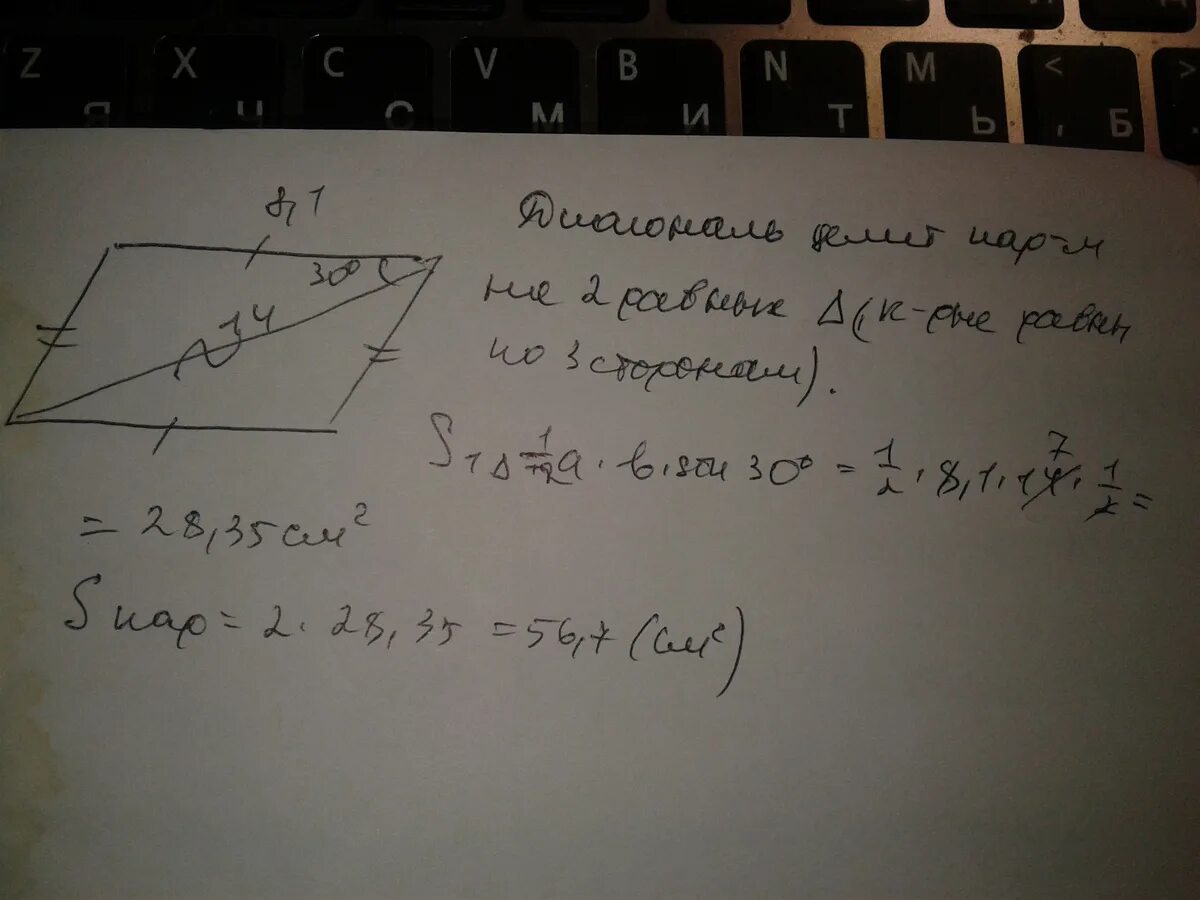 Z X C V B N M < >
Я Ч С М И Т Ь , Б .
8,1
30°
14
Диагональ делит пар-м
на 2 равных Δ(к-рые равны
по 3 сторонам).
S 1Δ = 1/2 a · b · sin 30° = 1/2 · 8,1 · 14 7 · 1/2 =
= 28,35 см²
S пар = 2 · 28,35 = 56,7 (см²)